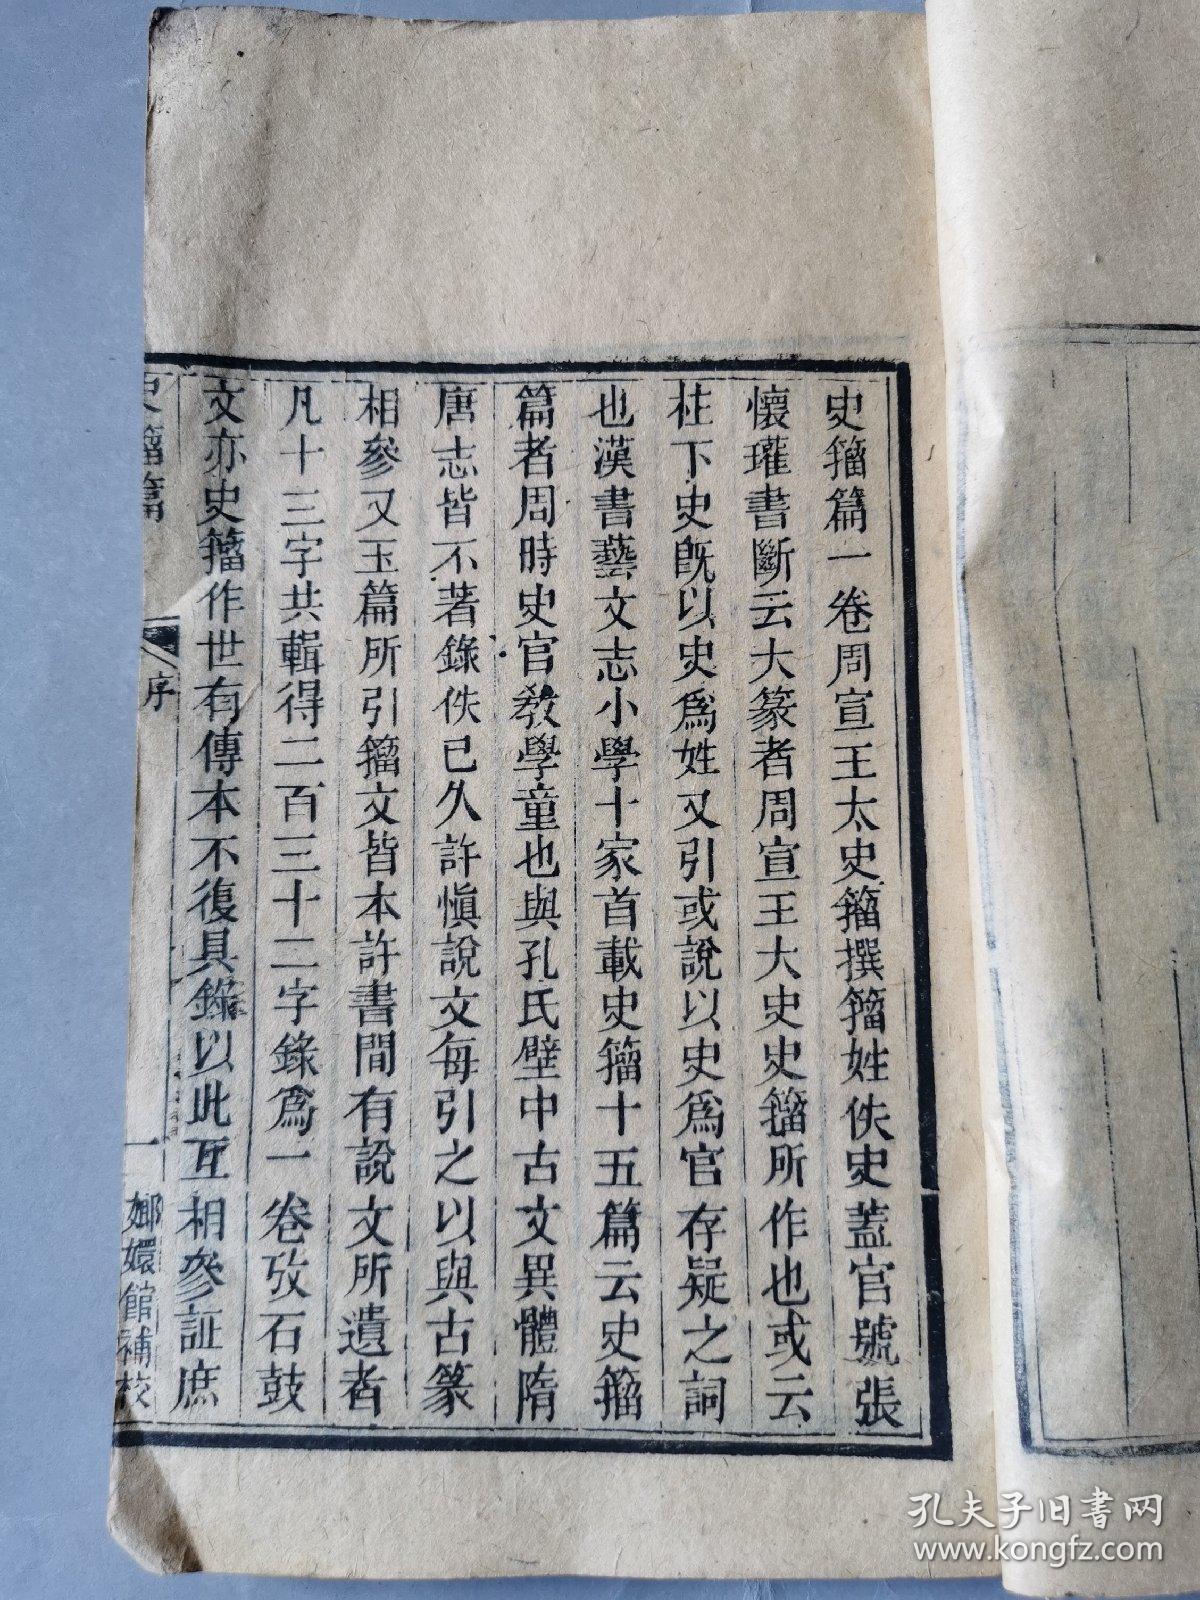 史籀篇一卷周宣王太史籀撰籀姓佚史蓋官號張
懷瓘書斷云大篆者周宣王大史史籀所作也或云
柱下史旣以史爲姓又引或說以史爲官存疑之詞
也漢書藝文志小學十家首載史籀十五篇云史籀
篇者周時史官敎學童也與孔氏壁中古文異體隋
唐志皆不著錄佚已久許愼說文每引之以與古篆
相參又玉篇所引籀文皆本許書間有說文所遺者
凡十三字共輯得二百三十二字錄爲一卷攷石鼓
文亦史籀作世有傳本不復具錄以此互相參証庶
史籀篇
序
一
嫏嬛館補校
孔夫子旧书网
www.kongfz.com